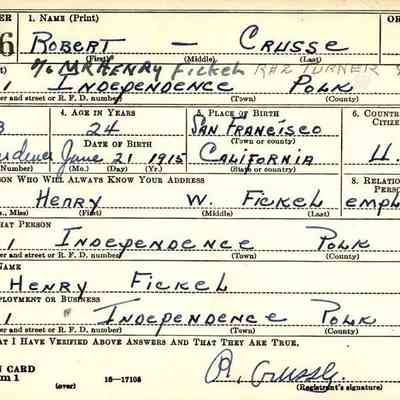 ER 1. NAME (Print) OR
6 ROBERT — CRUSSE
(First) (Middle) (Last)
% MR HENRY FICKEL
1 INDEPENDENCE POLK
ber and street or R. F. D. number) (Town) (County)
4. AGE IN YEARS 5. PLACE OF BIRTH 6. COUNTRY
24 SAN FRANCISCO CITIZE
DATE OF BIRTH (Town or county)
June 21 1915 CALIFORNIA U.
(Mo.) (Day) (Yr.) (State or country)
SON WHO WILL ALWAYS KNOW YOUR ADDRESS 8. RELATION
PERSO
HENRY W. FICKEL empl
s, Mrs.) (First) (Middle) (Last)
HAT PERSON
1 INDEPENDENCE POLK
ber and street or R. F. D. number) (Town) (County)
NAME
HENRY FICKEL
PLOYMENT OR BUSINESS
1 INDEPENDENCE POLK
ber and street or R. F. D. number) (Town) (County)
AT I HAVE VERIFIED ABOVE ANSWERS AND THAT THEY ARE TRUE.
N CARD
m 1 (over) 16—17105 R. Crusse
Registrant's signature)